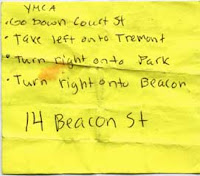 YMCA
• Go Down Court St
• Take left onto Tremont
• Turn right onto Park
• Turn right onto Beacon
14 Beacon St